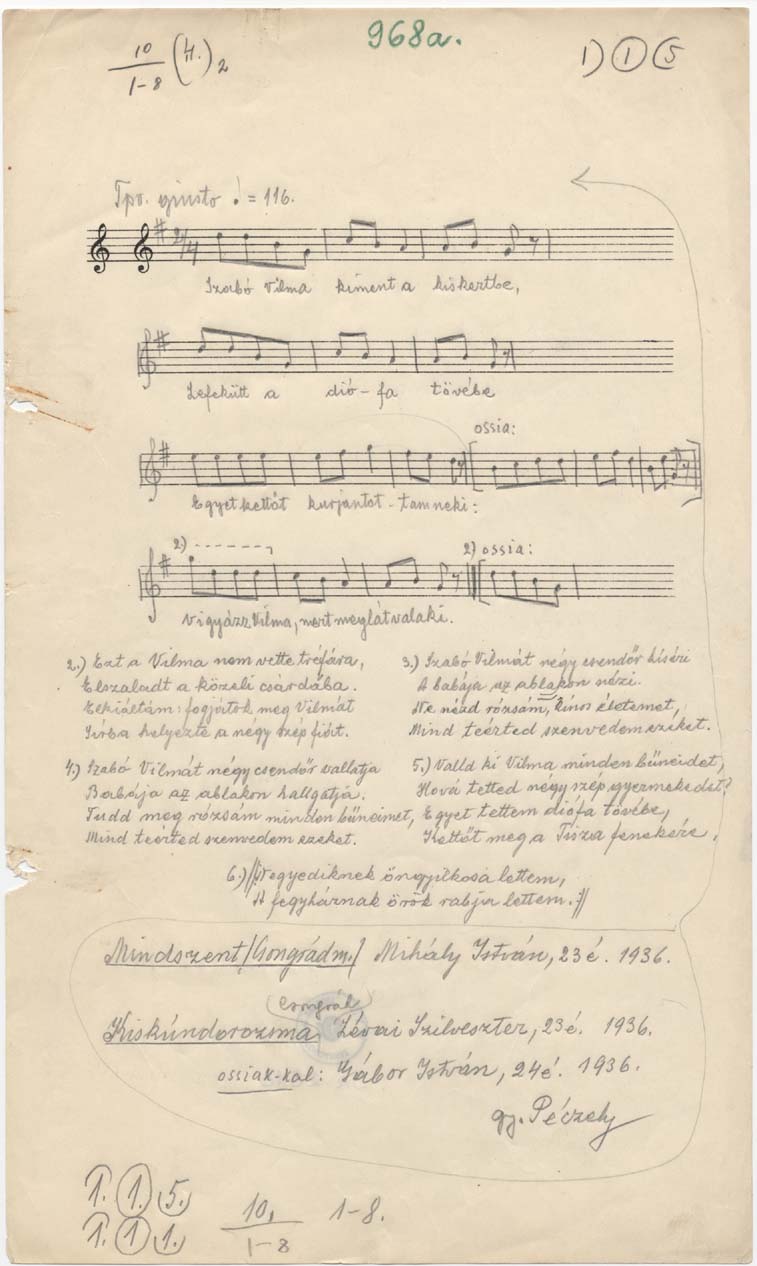 968a.
10/1-8 (4.)2
1) 1 5
Tpo. giusto ♩ = 116.
2/4
Szabó Vilma kiment a kiskertbe,
Lefekütt a dió-fa tövébe
ossia:
Egyet kettőt kurjantot-tam neki:
2.) 2) ossia:
Vigyázz Vilma, mert meglát valaki.
2.) Ezt a Vilma nem vette tréfára,
Elszaladt a közeli csárdába.
Elkiáltám: fogjátok meg Vilmát
Sírba helyezte a négy szép fiát.
3.) Szabó Vilmát négy csendőr kíséri
A babája az ablakon nézi.
Ne nézd rózsám, kínos életemet,
Mind teérted szenvedem ezeket.
4.) Szabó Vilmát négy csendőr vallatja
Babája az ablakon hallgatja.
Tudd meg rózsám minden bűneimet,
Mind teérted szenvedem ezeket.
5.) Valld ki Vilma minden bűneidet,
Hová tetted négy szép gyermekedet?
Egyet tettem diófa tövébe,
Kettőt meg a Tisza fenekére,
6.) //: Negyediknek öngyilkosa lettem,
A fegyháznak örök rabja lettem. ://
Mindszent /Csongrádm./ Mihály István, 23 é. 1936.
(Csongrád)
Kiskúndorozsma Lévai Szilveszter, 23 é. 1936.
ossiák-kal: Gábor István, 24 é. 1936.
gy. Péczely
1. 1. 5.
1. 1. 1.
10, 1-8.
1-8